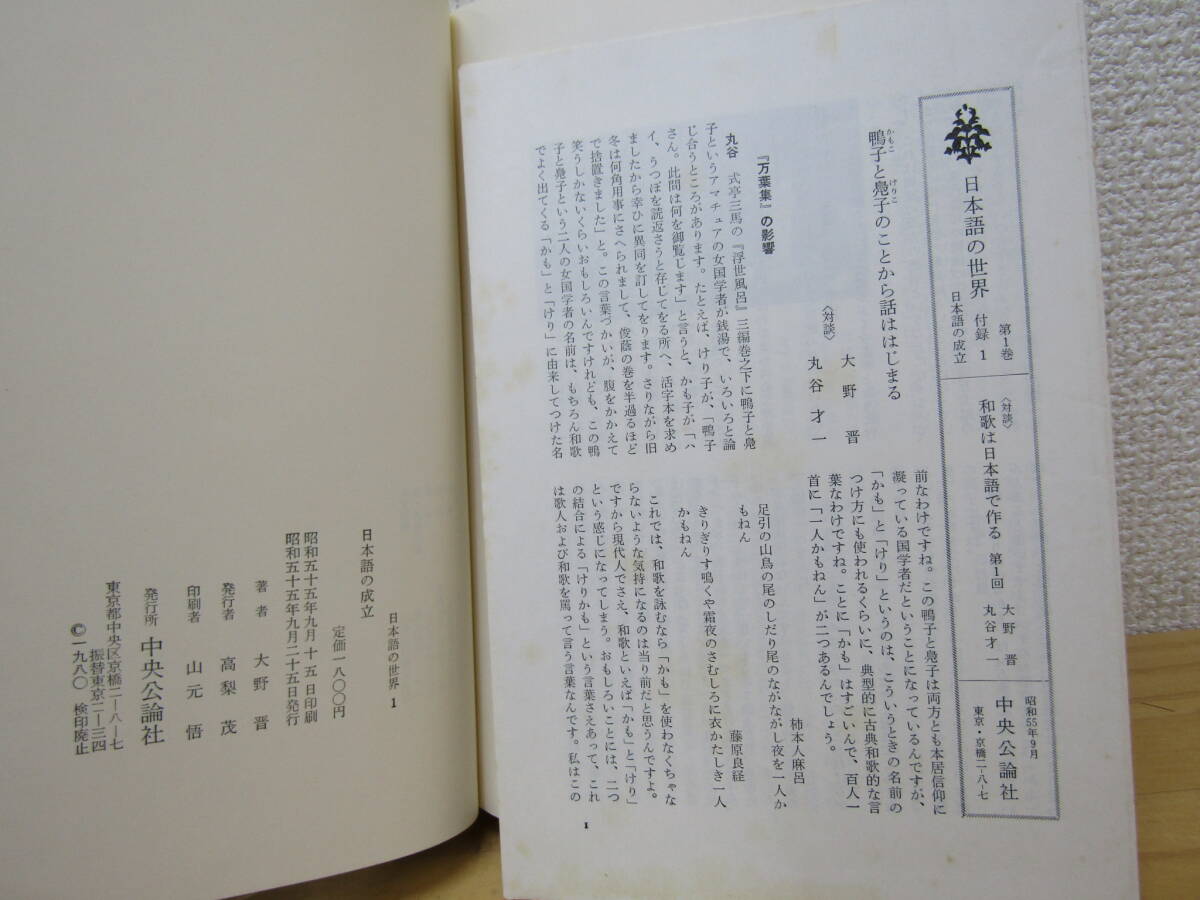 日本語の世界 付録 1
第1巻
日本語の成立
〈対談〉
和歌は日本語で作る 第1回
大野晋
丸谷才一
昭和55年9月
中央公論社
東京・京橋二-八-七
鴨子と鳧子のことから話ははじまる
かもこ
けりこ
〈対談〉
大野晋
丸谷才一
『万葉集』の影響
丸谷 式亭三馬の『浮世風呂』三編巻之下に鴨子と鳧
子というアマチュアの女国学者が銭湯で、いろいろと論
じ合うところがあります。たとえば、けり子が、「鴨子
さん。此間は何を御覧じます」と言うと、かも子が「ハ
イ、うつぼを読返さうと存じてをる所へ、活字本を求め
ましたから幸ひに異同を訂してをります。さりながら旧
冬は何角用事にさへられまして、俊蔭の巻を半過るほど
で捨置きました」と。この言葉づかいが、腹をかかえて
笑うしかないくらいおもしろいんですけれども、この鴨
子と鳧子という二人の女国学者の名前は、もちろん和歌
でよく出てくる「かも」と「けり」に由来してつけた名
前なわけですね。この鴨子と鳧子は両方とも本居信仰に
凝っている国学者だということになっているんですが、
「かも」と「けり」というのは、こういうときの名前の
つけ方にも使われるくらいに、典型的に古典和歌的な言
葉なわけですね。ことに「かも」はすごいんで、百人一
首に「一人かもねん」が二つあるんでしょう。
柿本人麻呂
足引の山鳥の尾のしだり尾のながながし夜を一人か
もねん
藤原良経
きりぎりす鳴くや霜夜のさむしろに衣かたしき一人
かもねん
これでは、和歌を詠むなら「かも」を使わなくちゃな
らないような気持になるのは当り前だと思うんですよ。
ですから現代人でさえ、和歌といえば「かも」と「けり」
という感じになってしまう。おもしろいことには、二つ
の結合による「けりかも」という言葉さえあって、これ
は歌人および和歌を罵って言う言葉なんです。私はこの
1
日本語の世界 1
日本語の成立
定価一八〇〇円
昭和五十五年九月 十五 日印刷
昭和五十五年九月二十五日発行
著者 大野晋
発行者 高梨茂
印刷者 山元悟
発行所 中央公論社
東京都中央区京橋二-八-七
振替東京二-三四
©一九八〇 検印廃止